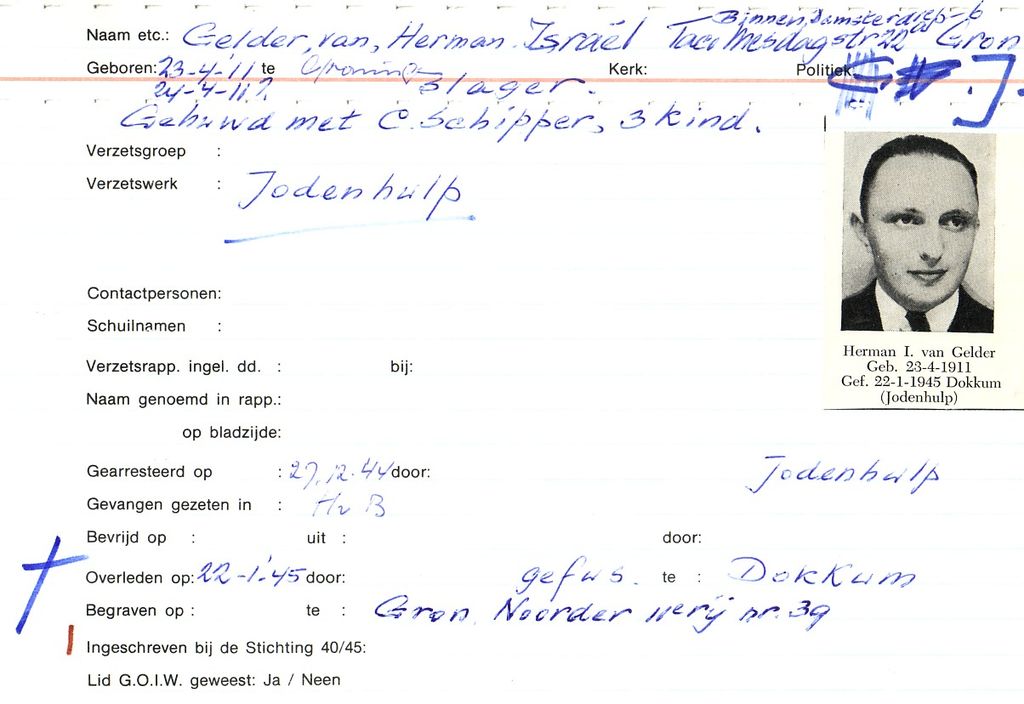 Binnen Damsterdiep 6
Naam etc.: Gelder, van, Herman Israël Taco Mesdagstr 22a Gron
Geboren: 23-4-'11 te Groningen Kerk: Politiek: J.
24-4-11? slager.
Gehuwd met C. Schipper, 3 kind.
Verzetsgroep :
Verzetswerk : Jodenhulp
Contactpersonen:
Schuilnamen :
Herman I. van Gelder
Geb. 23-4-1911
Gef. 22-1-1945 Dokkum
(Jodenhulp)
Verzetsrapp. ingel. dd. : bij:
Naam genoemd in rapp.:
op bladzijde:
Gearresteerd op : 27.12.44 door: Jodenhulp
Gevangen gezeten in : HvB
Bevrijd op : uit : door:
Overleden op: 22-1-'45 door: gefus. te : Dokkum
Begraven op : te : Gron. Noorder rerij nr. 39
Ingeschreven bij de Stichting 40/45:
Lid G.O.I.W. geweest: Ja / Neen